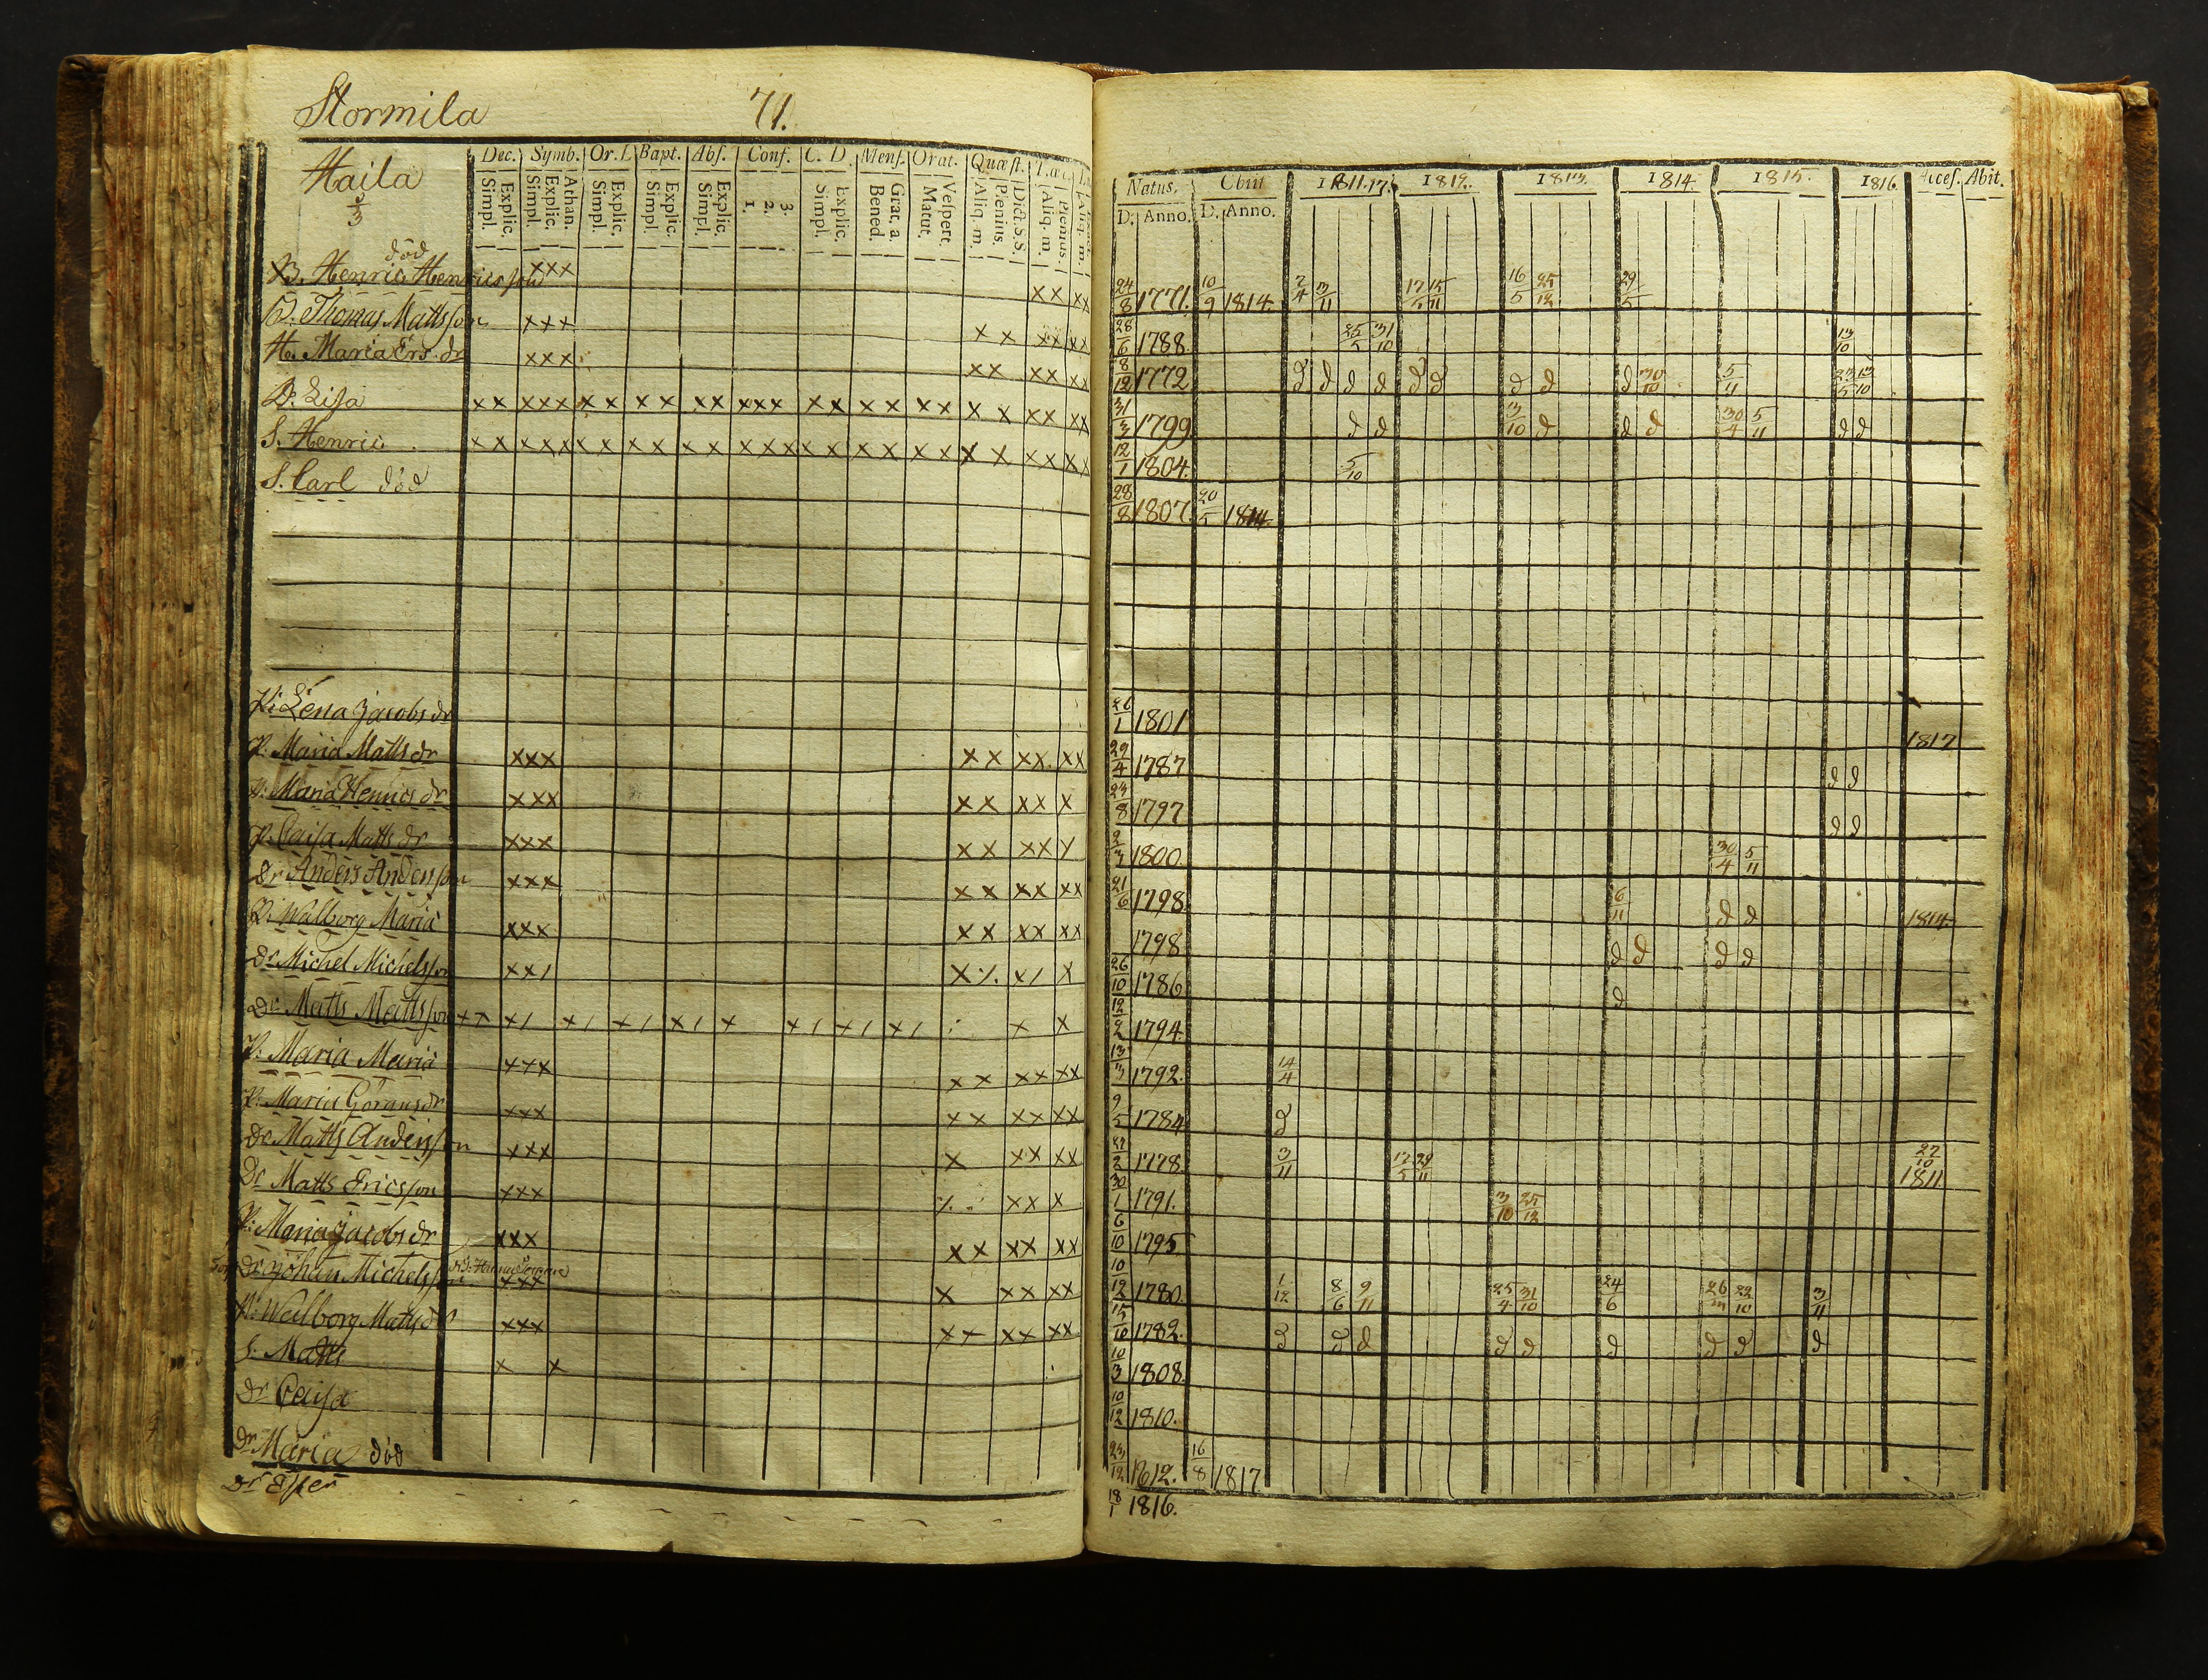 Stormila 71.
Haila
Dec. Symb. Or. D. Bapt. Abs. Conf. C. D. Mens. Orat. Quæst.
Explic. Simpl. Athan. Explic. Simpl. Explic. Simpl. Explic. Simpl. Explic. Simpl. 3. 2. 1. Explic. Simpl. Grat. a. Bened. Vespert. Matut. Dict. S.S. Plenius. Aliq. m. Plenius. Aliq. m.
Natus. Obiit 1811.17. 1812. 1813. 1814 1815. 1816. Acces. Abit.
D. Anno. D. Anno.
B. Henric Henricsson död xxx xx xx 24/8 1771. 10/9 1814. 7/4 3/11 17/5 15/11 16/5 25/12 29/5
B. Thomas Mattsson xxx x x xx xx 28/6 1788 25/5 31/10 13/10
H. Maria Ers. dr xxx xx xx xx 8/12 1772 d d d d d d d d d 30/10 5/11 23/5 13/10
D. Lisa xx xxx xx xx xx xxx xx xx xx x x xx xx 31/3 1799 d d 3/10 d d d 30/4 5/11 d d
S. Henric xx xxx xx xx xx xxx xx xx xx x x xx xx 12/1 1804. 5/10
S. Carl död 28/8 1807 20/5 1814
Pi. Lena Jacobs dr 26/1 1801 1817
P. Maria Matts dr xxx xx xx. xx 29/4 1787 d d
P. Maria Henrics dr xxx xx xx x 23/8 1797 d d
P. Caisa Matts dr xxx xx xx 2/3 1800. 30/4 5/11
Dr Anders Andersson xxx xx xx xx 21/6 1798 6/11 d d 1814.
P. Walborg Maria xxx xx xx xx 1798 d d d d
Dr Michel Michelsson xx/ x x/ x 26/10 1786 d
Dr. Matts Mattsson x/ x/ x/ x/ x x/ x/ x/ x x 12/2 1794.
P. Maria Maria xxx xx xx xx 13/3 1792. 14/4
P. Maria Görans dr xxx xx xx xx 9/5 1784 d
Dr Matts Andersson xxx x xx xx 1778 3/11 17/5 29/11 27/10 1811
Dr Matts Ericsson xxx xx x 30/1 1791. 3/10 25/12
P. Maria Jacobs dr xxx xx xx xx 6/10 1795
Dr. Johan Michelsson xxx x xx xx 10/12 1780 1/12 8/6 9/11 25/4 31/10 24/6 22/10 3/11
P. Walborg Matts dr xxx xx xx xx 15/10 1782. d d d d d d d d d
S. Matts x x 10/3 1808.
Dr Caisa 10/12 1810.
Dr Maria död 23/12 1812. 16/8 1817
Dr Ester 18/1 1816.